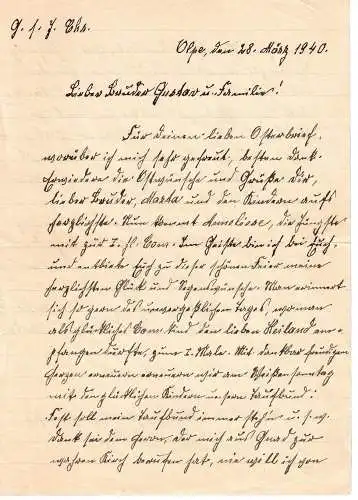 G. s. J. Chr.
Olpe, den 28. März 1940.
Lieber Bruder Gustav u. Familie!
Für Deinen lieben Osterbrief,
worüber ich mich sehr gefreut, besten Dank.
Erwiedere die Ostwünsche und Grüße Dir,
lieber Bruder, Marta und den Kindern aufs
herzlichste. Nun kommt Annoliese, die Jüngste
mit zur I. hl. Com. Im Geiste bin ich bei Euch
und entbiete Euch zu dieser schönen Feier meine
herzlichsten Glück und Segenswünsche. Man erinnert
sich so gern des unvergeßlichen Tages, wo man
als glückliches Com. Kind den lieben Heiland em-
pfangen durfte, zum I. Male. Mit dankbar freudigem
Herzen erneuern wir am Weißensonntag
mit den glücklichen Kindern unsern Taufbund:
Fest soll mein Taufbund immer stehn u. s. w.
Dank sei dem Herrn, der mich aus Gnad zur
wahren Kirch berufen hat, nie will ich von